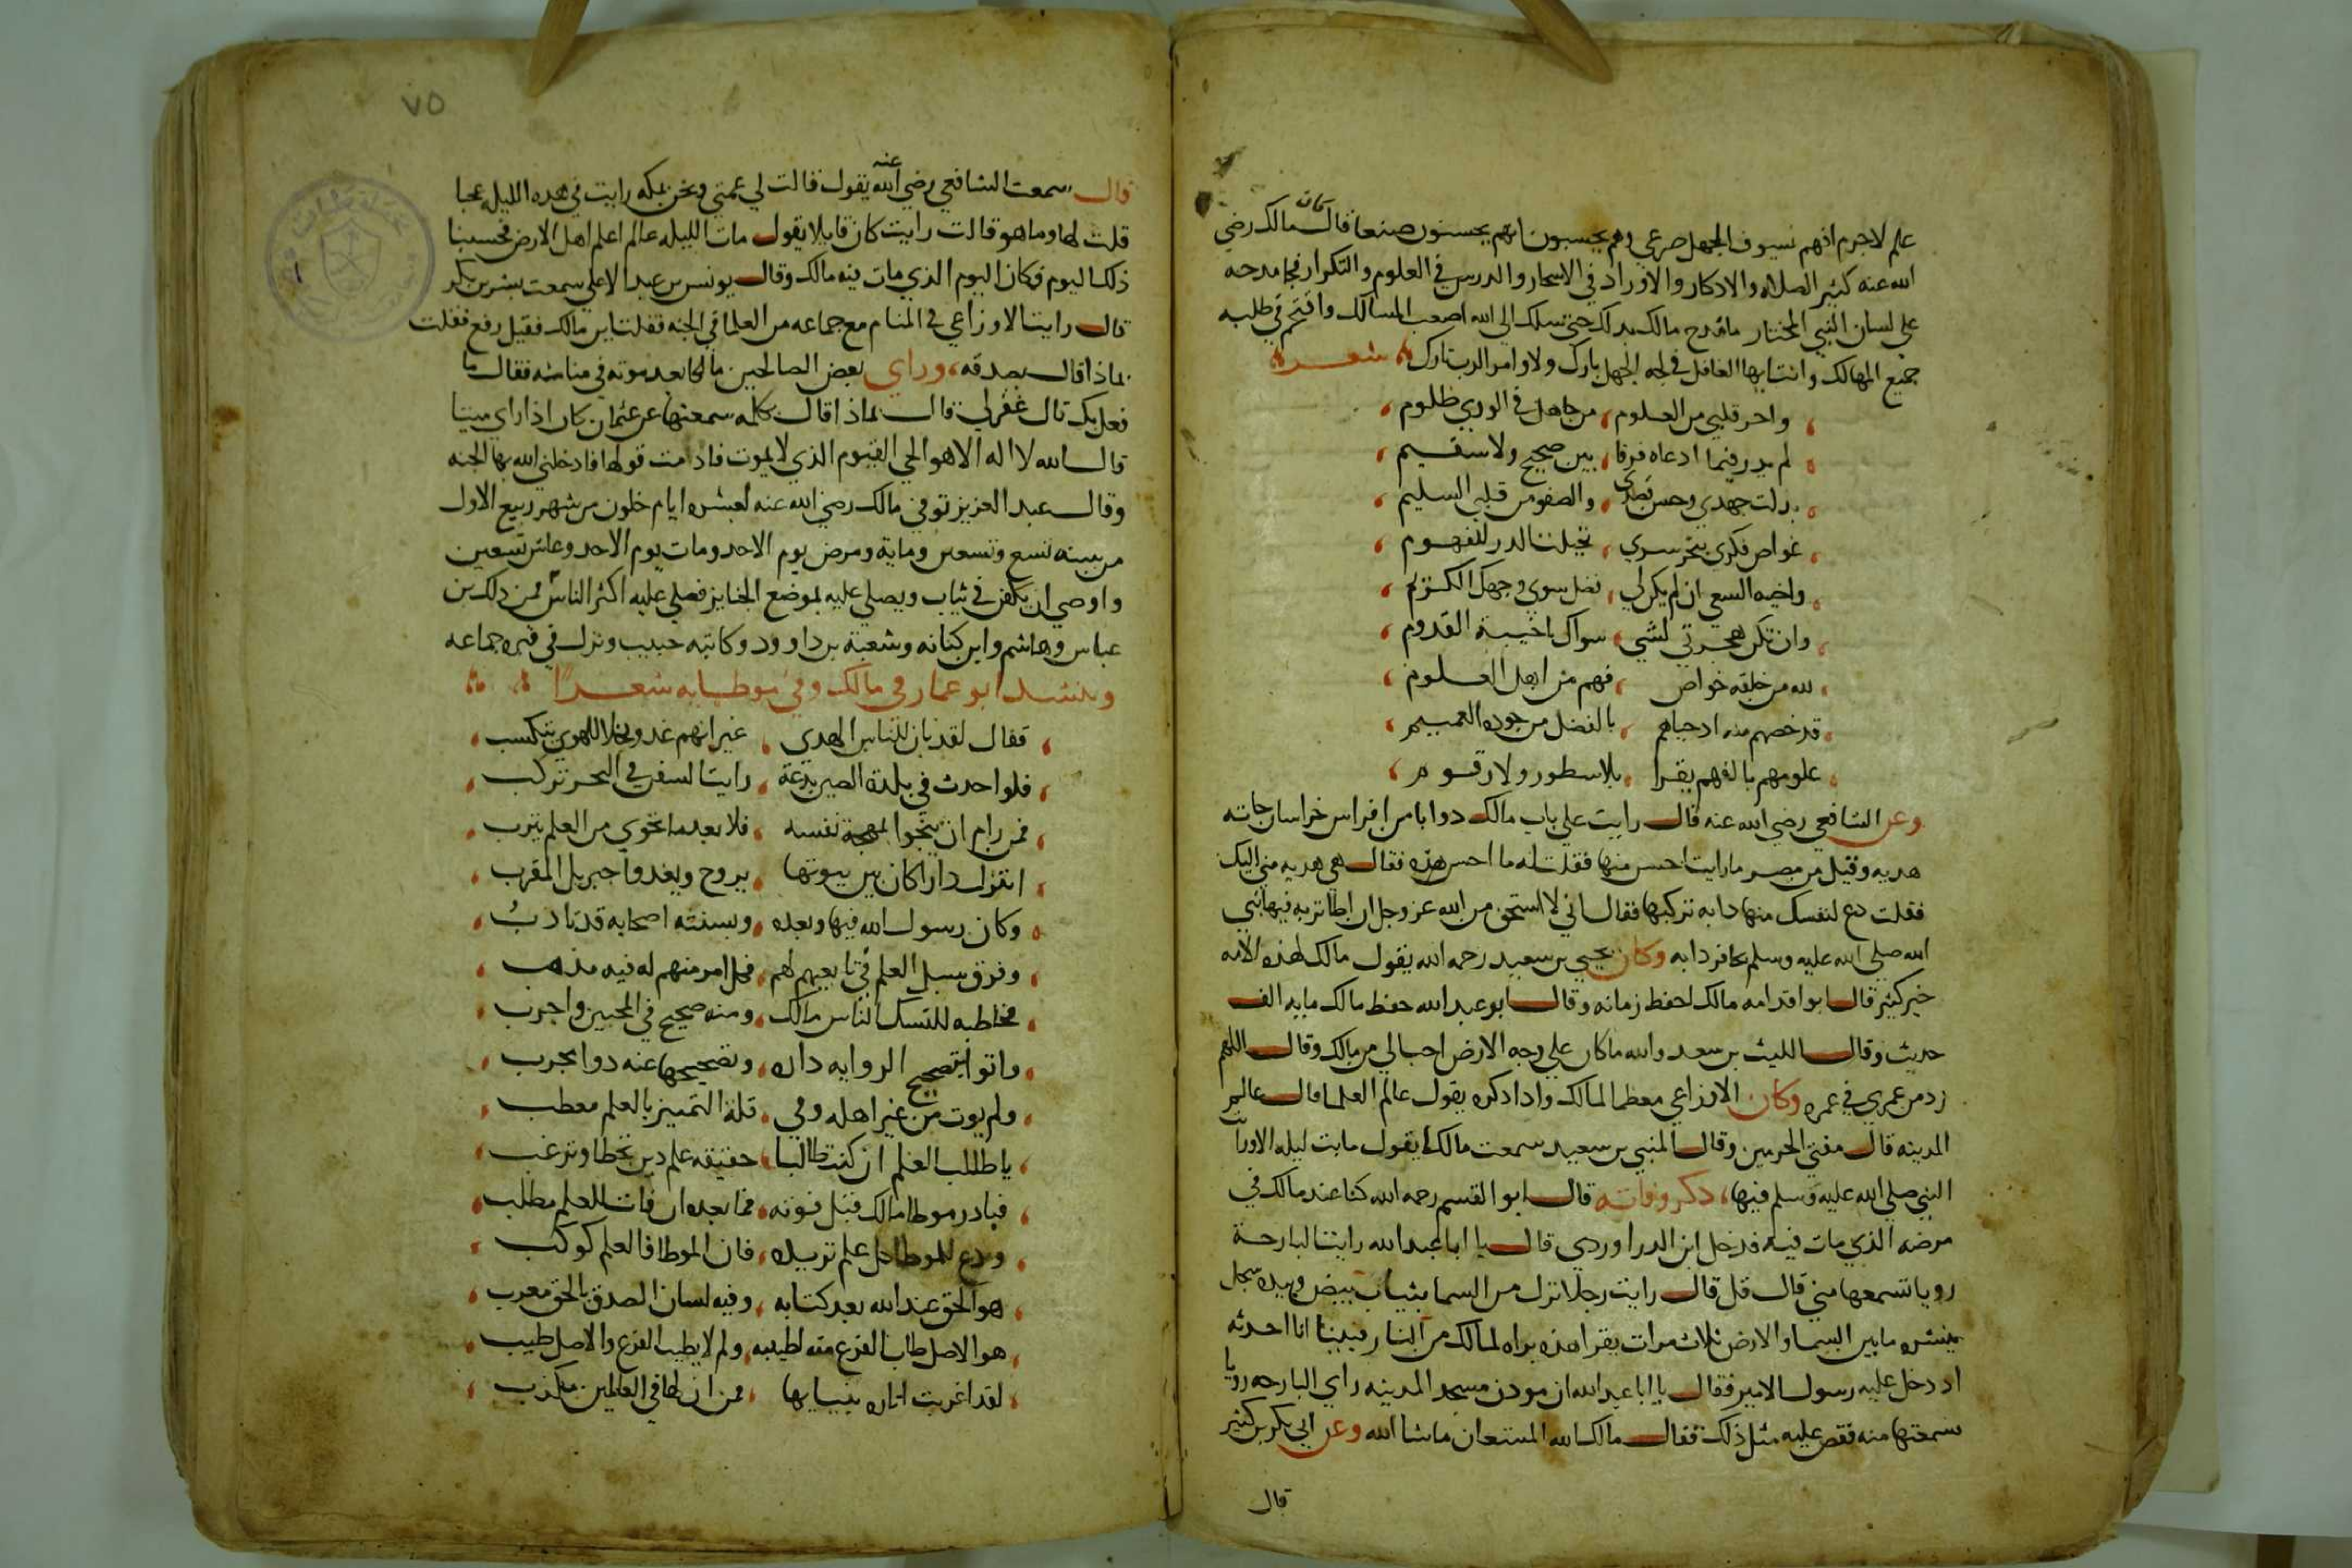 علم لاجرم انهم بسيوف الجهل صرعى وهم يحسبون انهم يحسنون صنعا قال كان مالك رضي
الله عنه كثير الصلاه والاذكار والاوراد في الاسحار والدرس في العلوم والتكرار فجا مدحه
على لسان النبي المختار ما قدح مالك بدلك حتى سلك الى الله اصعب المسالك واقتحم في طلبه
جميع المهالك وانت ايها الغافل في لجه الجهل بارك ولاوامر الرب تارك شعر
واحر قلبي من العلوم من جاهل في الورى ظلوم
لم يدر فيما ادعاه فرقا بين صحيح ولا سقيم
بدلت جهدي وحسن قصدي والصفو من قلبي السليم
غواص فكري ببحر سري الدر للفهوم
واخيبه السعي ان لم يكن لي فضل سوى وجهك الكريم
وان تكن هجرتي لشي سواك ياخيبة القدوم
لله من خلقه خواص فهم من اهل العلوم
قد خصهم منه اد حباهم بالفضل من جوده العميم
علومهم بالفهم يقرا بلا سطور ولا رقوم
وعن الشافعي رضي الله عنه قال رايت على باب مالك دوابا من افراس خراسان جاته
هديه وقيل من مصر ما رايت احسن منها فقلت له ما احسن هذه فقال هي هديه مني اليك
فقلت دع لنفسك منها دابه تركبها فقال اني لا استحق من الله عز وجل ان اطا تربه فيها نبي
الله صلى الله عليه وسلم بحافر دابه وكان يحيى بن سعيد رحمه الله يقول مالك لهذه الامه
خير كثير قال ابو اقدامه مالك احفظ زمانه وقال ابو عبد الله حفظ مالك مايه الف
حديث وقال الليث بن سعد والله ما كان على وجه الارض احب الي من مالك وقال اللهم
زد من عمري في عمره وكان الاوزاعي معظما لمالك وادا دكره يقول عالم العلما قال عالم
المدينه قال مفتي الحرمين وقال المثنى بن سعيد سمعت مالكا يقول ما بت ليله الا ورايت
النبي صلى الله عليه وسلم فيها دكر وفاته قال ابو القسم رحمه الله كنا عند مالك في
مرضه الذي مات فيه فدخل ابن الدراوردي قال يا ابا عبد الله رايت البارحة
رويا تسمعها مني قال قل قال رايت رجلا نزل من السما بثياب بيض وبيده سجل
ينشره ما بين السما والارض ثلاث مرات يقرا هذه براه لمالك من النار فبينا انا احدثه
اد دخل عليه رسول الامير فقال يا ابا عبد الله ان مودن مسجد المدينه راى البارحه رويا
سمعتها منه فقص عليه مثل ذلك فقال مالك الله المستعان ماشا الله وعن ابي بكر بن كثير
قال
٧٥
قال سمعت الشافعي رضي الله عنه يقول قالت لي عمتي ونحن بمكه رايت في هذه الليله عجبا
قلت لها وما هو قالت رايت كان قايلا يقول مات الليله عالم اعلم اهل الارض فحسبنا
ذلك اليوم فكان اليوم الذي مات فيه مالك وقال يونس بن عبد الاعلى سمعت بشر بن بكر
قال رايت الاوزاعي في المنام مع جماعه من العلما في الجنه فقلت اين مالك فقيل رفع فقلت
بماذا قال بصدقه وراي بعض الصالحين مالكا بعد موته في منامه فقال ما
فعل بك قال غفر لي قال بماذا قال بكلمه سمعتها عن عثمان كان اذا راى ميتا
قال لله لا اله الا هو الحي القيوم الذي لا يموت فادمت قولها فادخلني الله بها الجنه
وقال عبد العزيز توفي مالك رضي الله عنه لعشره ايام خلون من شهر ربيع الاول
من سنه تسع وتسعين ومايه ومرض يوم الاحد ومات يوم الاحد وعاش تسعين
واوصى ان يكفن في ثياب ويصلى عليه بموضع الجنايز فصلى عليه اكثر الناس فمن ذلك بن
عباس وهاشم وابن كنانه وشعبة بن داوود وكاتبه حبيب ونزل في قبره جماعه
وينشد ابو عمار في مالك وفي موطايه شعرا
فقال لقد بان للناس الهدى غير انهم غدو اللهوى
فلو احدث في بلدة الصين بدعة رايت السفن في البحر تركب
فمن رام ان ينجوا بمهجة نفسه فلا بعد ما تحوي من العلم يثرب
اتنزل دارا كان بين بيوتها يروح ويغدوا جبريل المقرب
وكان رسول الله فيها وبعده وبسنته اصحابه قد تادبُ
وفرق سبل العلم في تابعيهم لهم فكل امر منهم له فيه مذهب
للناس مالك ومنه صحيح في واجرب
واتوا بتصحيح الروايه داره وتصحيحها عنه دوا مجرب
ولم يوت من غير اهله وفي قلة التمييز بالعلم معطب
يا طالب العلم ان كنت طالبا حقيقه علم دين تحظا وترغب
فبادر موطا مالك قبل فوته فما بعده ان فات للعلم مطلب
ودع للموطا كل علم تريده فان الموطا فالعلم كوكب
هو الحق عند الله بعد كتابه وفيه لسان الصدق بالحق معرب
هو الاصل طاب الفرع منه لطيبه ولم لا يطيب الفرع والاصل طيب
لقد اغربت اثاره ببيايها فمن ان لها في العالمين مكذب